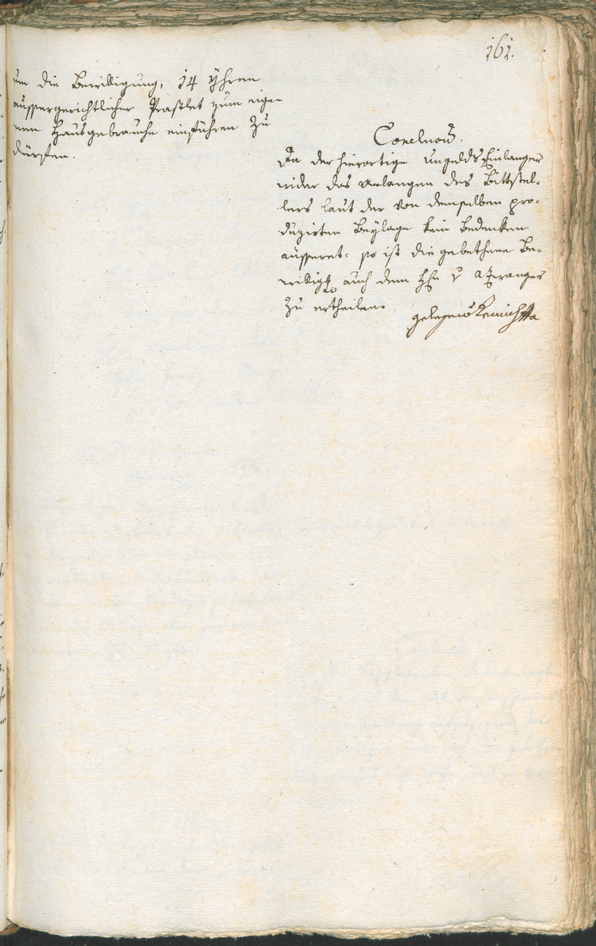 161.
um die Bewilligung, 14 Yhren
aussergerichtlicher Praschlet zum eige-
nen Hausgebrauche einführen zu
dürfen.
Conclusum.
Da der hierortige Ungelds Einlanger
wider das Anlangen des Bittstel-
lers laut der von demselben pro-
duzirten Beylage kein Bedenken
äusseret: so ist die gebethene Be-
willigg auch dem Hn v
zu ertheilen.